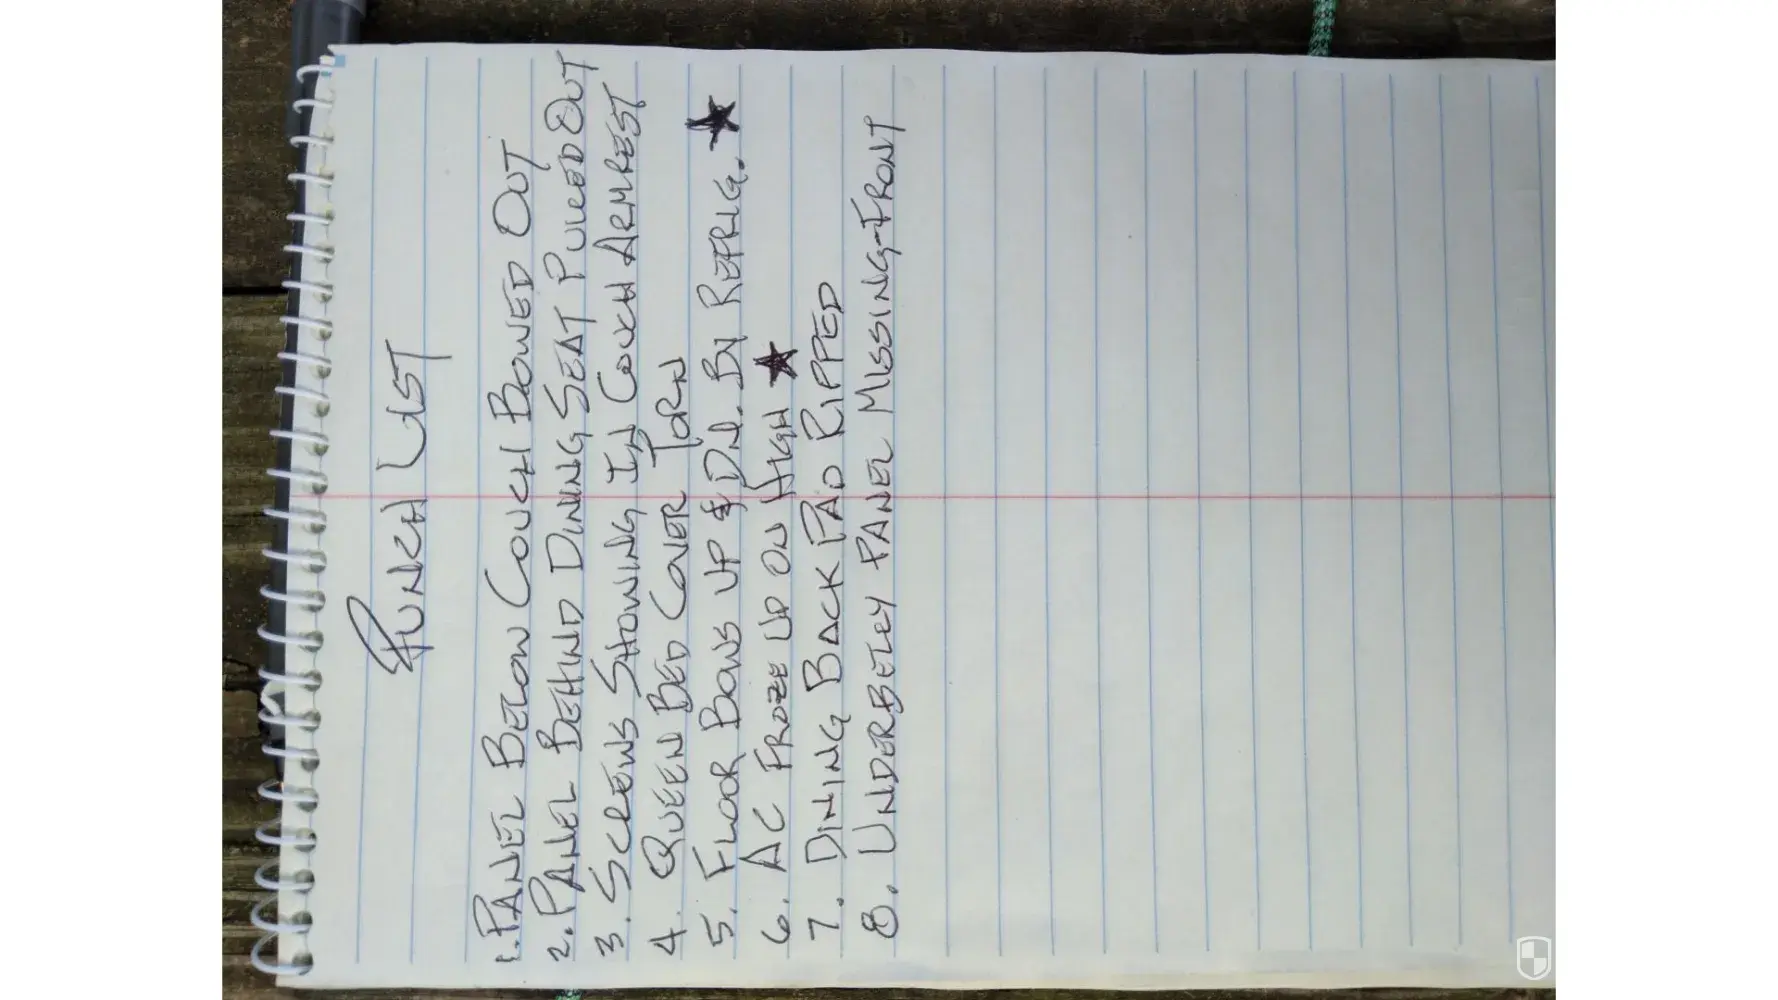 PUNCH LIST
1. PANEL BELOW COUCH BOWED OUT
2. PANEL BEHIND DINING SEAT PULLED OUT
3. SCREWS SHOWING IN COUCH ARMREST
4. QUEEN BED COVER TORN
5. FLOOR BOWS UP & DN. BY REFRIG. ★
6. AC FROZE UP ON HIGH ★
7. DINING BACK PAD RIPPED
8. UNDERBELLY PANEL MISSING-FRONT